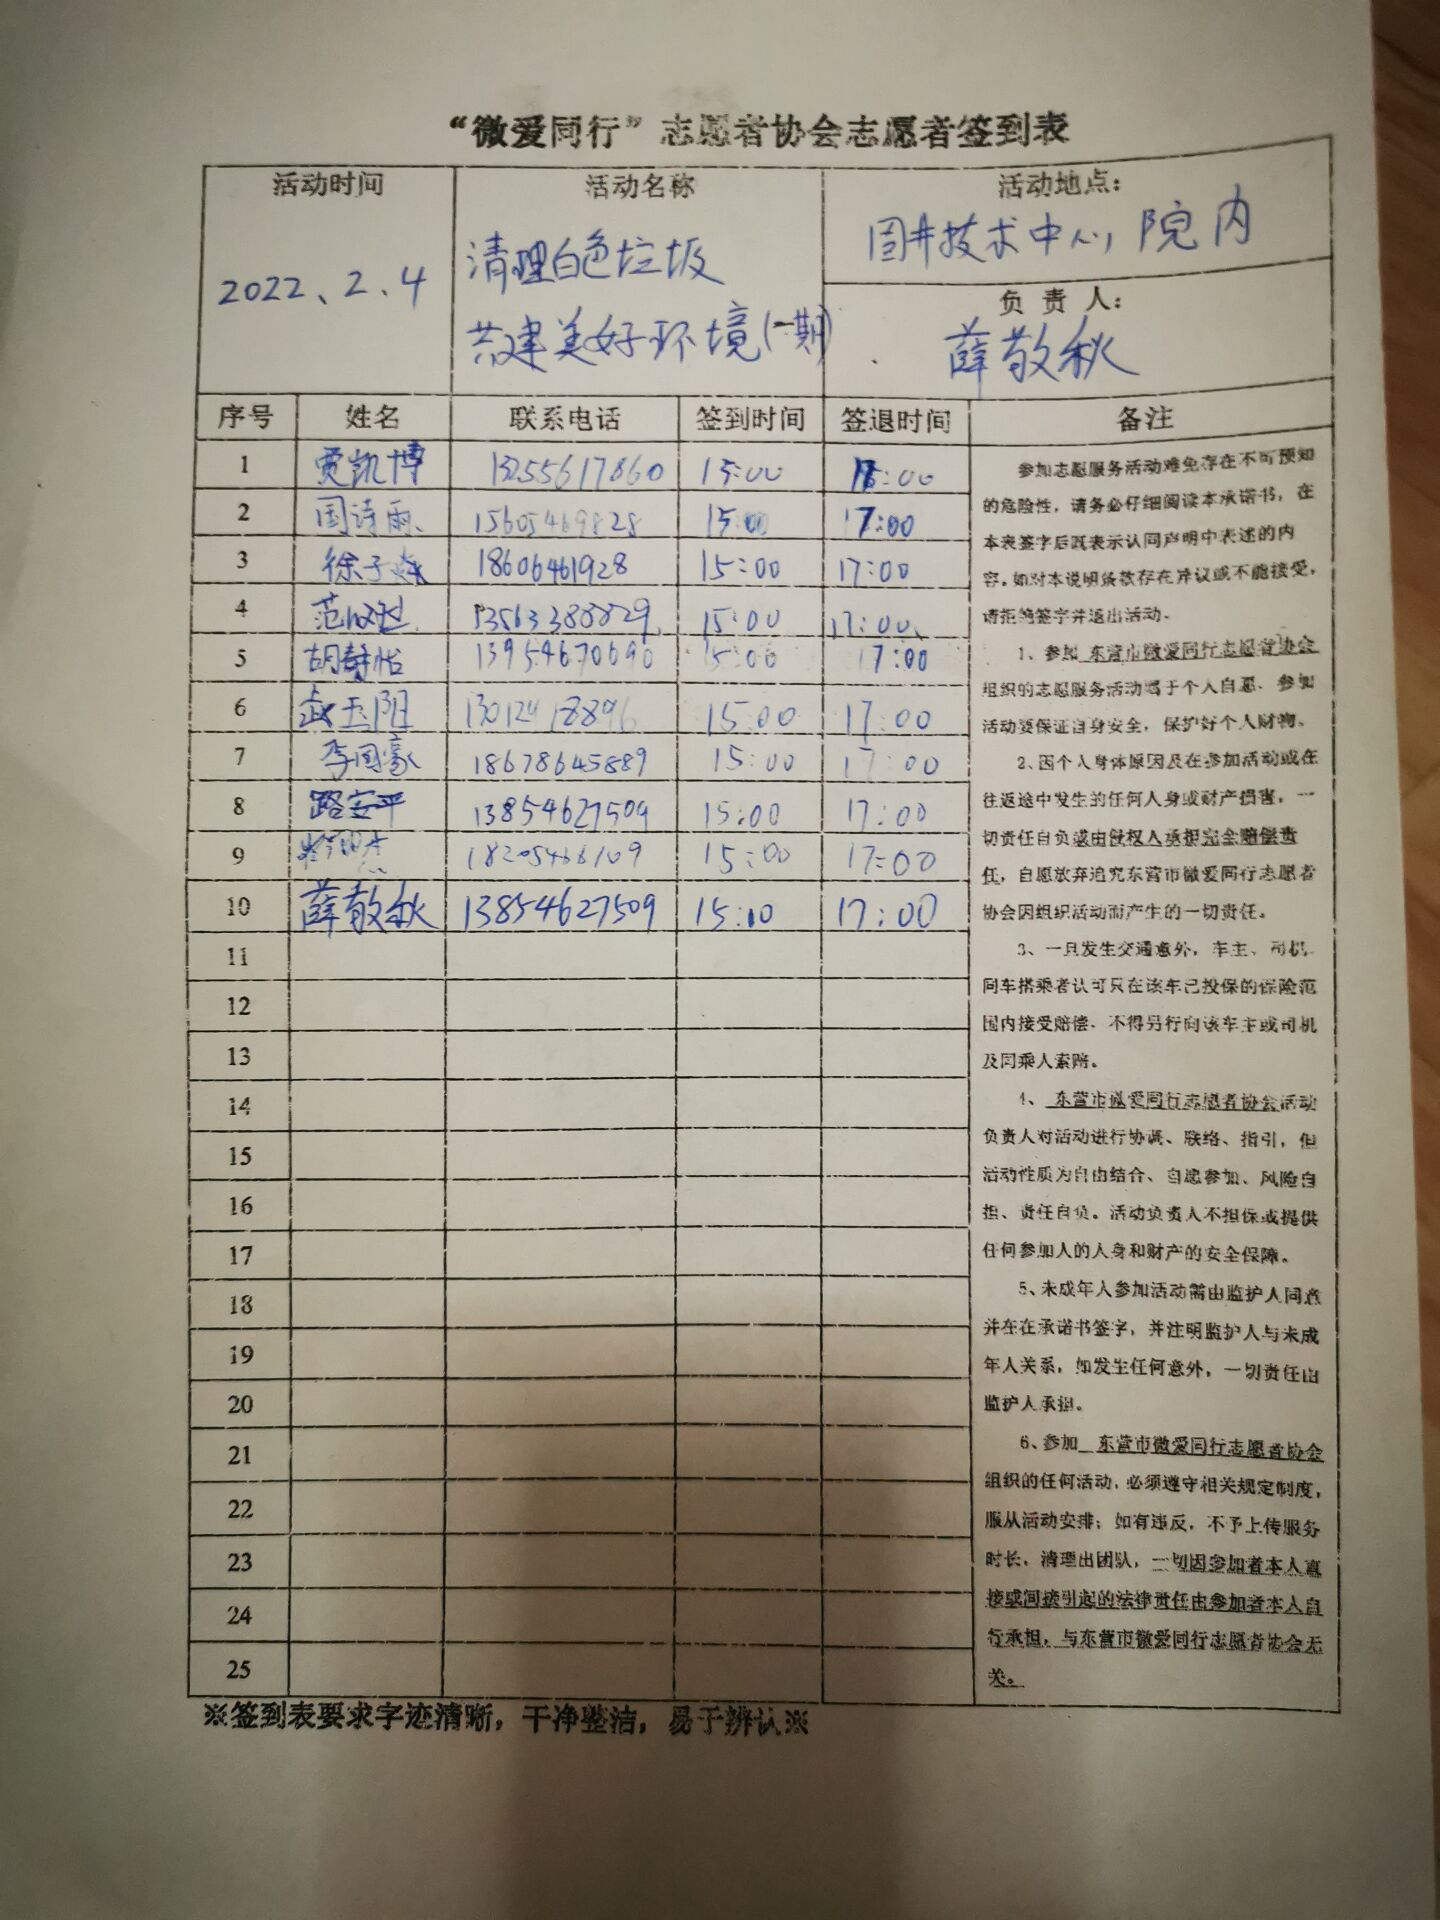 “微爱同行”志愿者协会志愿者签到表
活动时间 活动名称 活动地点：
2022、2、4 清理白色垃圾 固井技术中心院内
共建美好环境(一期) 负责人：
薛敬秋
序号 姓名 联系电话 签到时间 签退时间 备注
1 贾凯博 13255617860 15:00 :00
2 国诗雨 15605469828 15:00 17:00
3 徐子 18606461928 15:00 17:00
4 范 13563388829 15:00 17:00
5 胡静怡 13954670690 15:00 17:00
6 武玉阳 13012418896 15:00 17:00
7 李国豪 18678645889 15:00 17:00
8 路安平 13854627509 15:00 17:00
9 15:00 17:00
10 薛敬秋 13854627509 15:10 17:00
11
12
13
14
15
16
17
18
19
20
21
22
23
24
25
参加志愿服务活动难免存在不可预知
的危险性，请务必仔细阅读本承诺书，在
本表签字后既表示认同声明中表述的内
容。如对本说明条款存在异议或不能接受，
请拒绝签字并退出活动。
1、参加 东营市微爱同行志愿者协会
组织的志愿服务活动属于个人自愿，参加
活动要保证自身安全，保护好个人财物。
2、因个人身体原因及在参加活动或在
往返途中发生的任何人身或财产损害，一
切责任自负或由侵权人承担完全赔偿责
任，自愿放弃追究东营市微爱同行志愿者
协会因组织活动而产生的一切责任。
3、一旦发生交通意外，车主、司机、
同车搭乘者认可只在该车已投保的保险范
围内接受赔偿，不得另行向该车主或司机
及同乘人索赔。
4、 东营市微爱同行志愿者协会活动
负责人对活动进行协调、联络、指引，但
活动性质为自由结合、自愿参加、风险自
担、责任自负。活动负责人不担保或提供
任何参加人的人身和财产的安全保障。
5、未成年人参加活动需由监护人同意
并在在承诺书签字，并注明监护人与未成
年人关系，如发生任何意外，一切责任由
监护人承担。
6、参加 东营市微爱同行志愿者协会
组织的任何活动，必须遵守相关规定制度，
服从活动安排；如有违反，不予上传服务
时长，清理出团队，一切因参加者本人直
接或间接引起的法律责任由参加者本人自
行承担，与东营市微爱同行志愿者协会无
关。
※签到表要求字迹清晰，干净整洁，易于辨认※